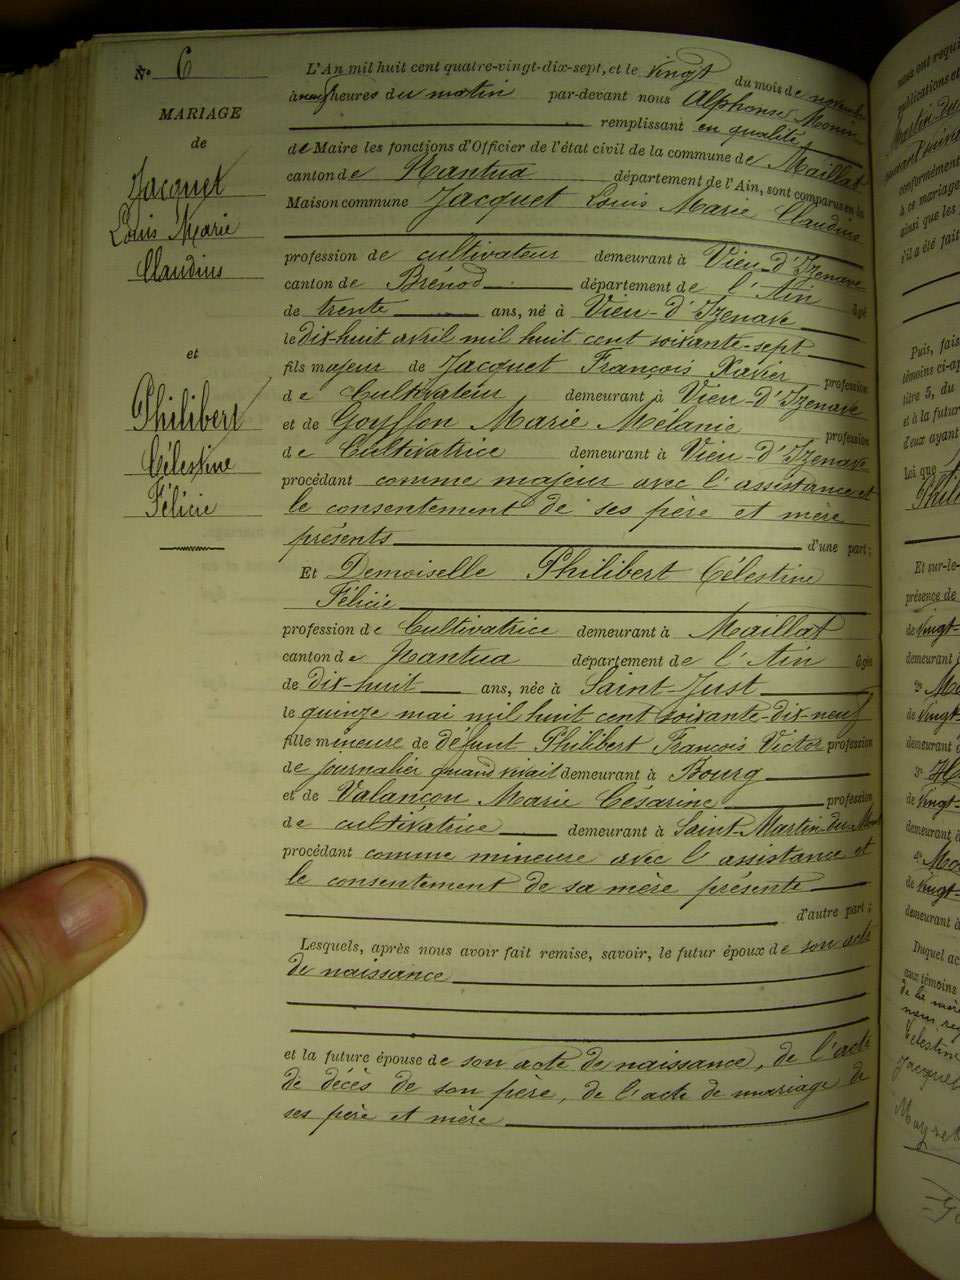 N° 6
MARIAGE
de
Jacquet
Louis Marie
Claudius
et
Philibert
Célestine
Félicie
L'An mil huit cent quatre-vingt-dix-sept, et le vingt du mois de novembre
à neuf heures du matin par-devant nous Alphonse Monin
remplissant en qualité
de Maire les fonctions d'Officier de l'état civil de la commune de Maillat
canton de Nantua département de l'Ain, sont comparus en la
Maison commune Jacquet Louis Marie Claudius
profession de cultivateur demeurant à Vieu-d'Izenave
canton de Brénod département de l'Ain âgé
de trente ans, né à Vieu-d'Izenave
le dix-huit avril mil huit cent soixante-sept
fils majeur de Jacquet François Xavier profession
de Cultivateur demeurant à Vieu-d'Izenave
et de Goyffon Marie Mélanie profession
de Cultivatrice demeurant à Vieu-d'Izenave
procédant comme majeur avec l'assistance et
le consentement de ses père et mère
présents d'une part;
Et Demoiselle Philibert Célestine
Félicie
profession de Cultivatrice demeurant à Maillat
canton de Nantua département de l'Ain âgée
de dix-huit ans, née à Saint-Just
le quinze mai mil huit cent soixante-dix-neuf
fille mineure de défunt Philibert François Victor profession
de journalier quand vivait demeurant à Bourg
et de Valançon Marie Césarine profession
de cultivatrice demeurant à Saint-Martin-du-Mont
procédant comme mineure avec l'assistance et
le consentement de sa mère présente
d'autre part;
Lesquels, après nous avoir fait remise, savoir, le futur époux de son acte
de naissance
et la future épouse de son acte de naissance, de l'acte
de décès de son père, de l'acte de mariage de
ses père et mère
nous ont requis
publications et
conformément
à ce mariage
ainsi que les
s'il a été fait
Puis, fais
témoins ci-ap
titre 5, du
et à la futur
d'eux ayant
Loi que
Phili
Et sur-le-
présence de
de vingt-
demeurant à
2° Ma
de vingt-
demeurant à
3°
de vingt-
demeurant à
4° Mo
de vingt-
demeurant à
Duquel ac
aux témoins
de la mère
nous req
Célestine
Jacquet